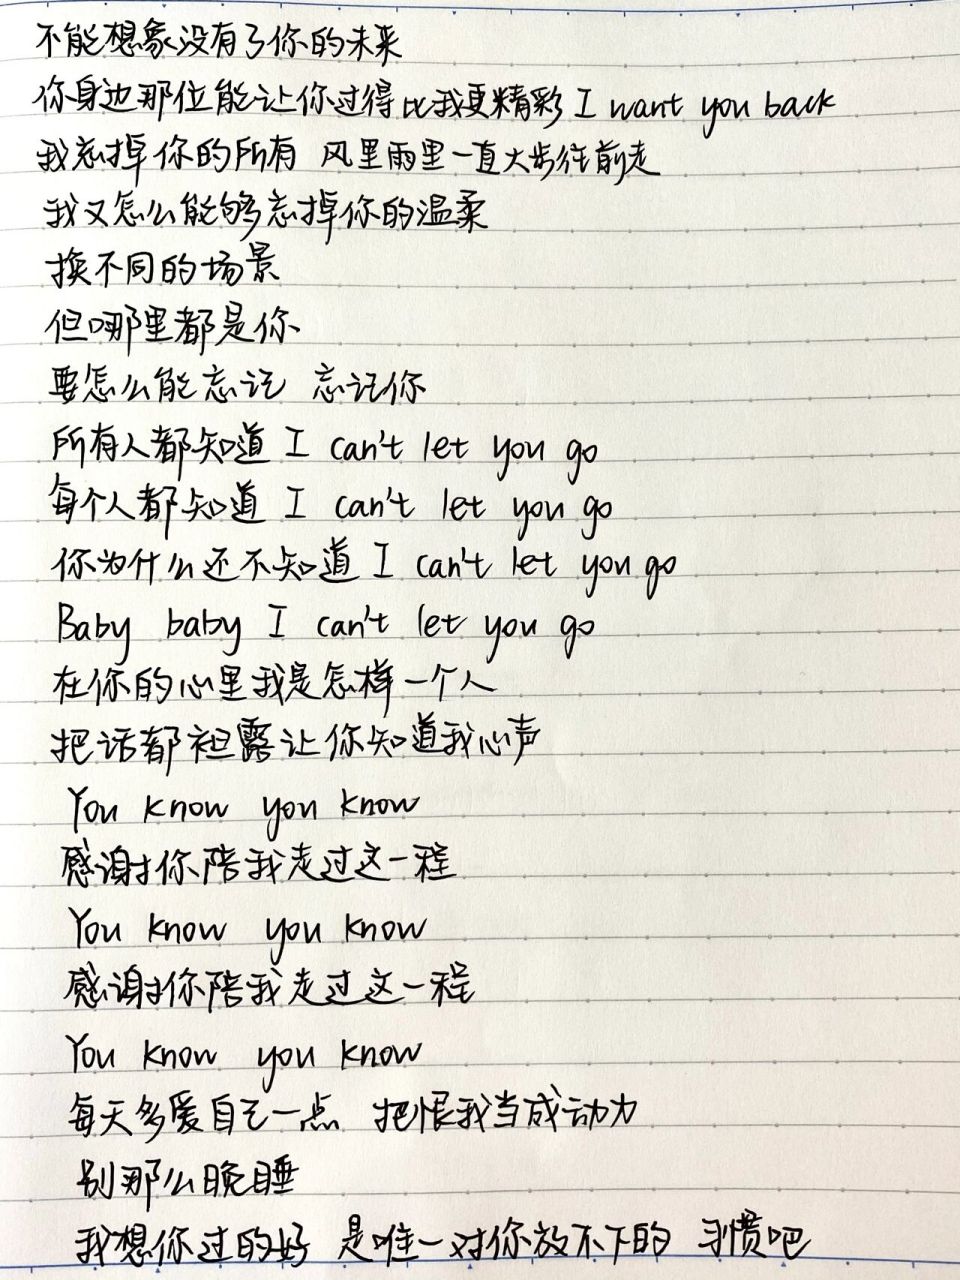 不能想象没有了你的未来
你身边那位能让你过得比我更精彩 I want you back
我忘掉你的所有 风里雨里一直大步往前走
我又怎么能够忘掉你的温柔
换不同的场景
但哪里都是你
要怎么能忘记 忘记你
所有人都知道 I can't let you go
每个人都知道 I can't let you go
你为什么还不知道 I can't let you go
Baby baby I can't let you go
在你的心里我是怎样一个人
把话都袒露让你知道我心声
You know you know
感谢你陪我走过这一程
You know you know
感谢你陪我走过这一程
You know you know
每天多爱自己一点 把恨我当成动力
别那么晚睡
我想你过的好 是唯一对你放不下的 习惯吧